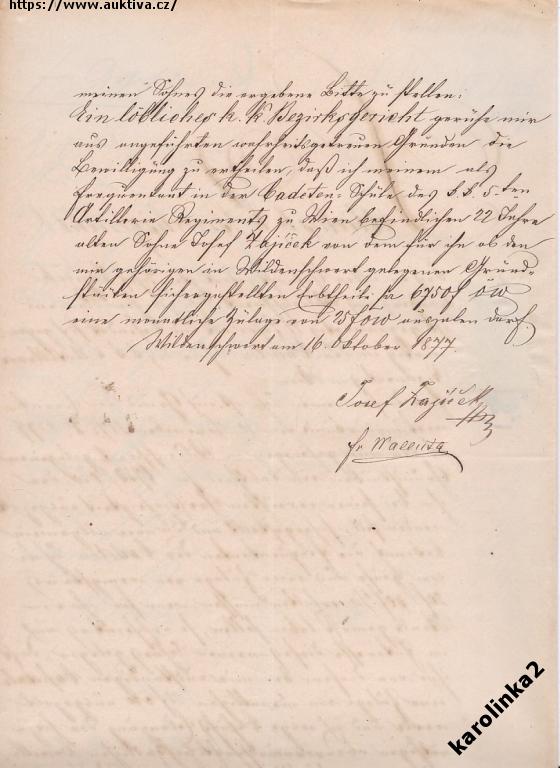 https://www.auktiva.cz/
meinen Sohnes die ergebene Bitte zu stellen:
Ein löbliches k. k Bezirksgericht geruhe mir
aus angeführten wahrheitsgetreuen Gründen die
Bewilligung zu ertheilen, daß ich meinem als
frequentant in der Cadeten-Schule des k. k. 5-ten
Artillerie Regiments zu Wien befindlichen 22 Jahre
alten Sohne Josef Zajiček von dem für ihn ob den
mir gehörigen in Wildenschwert gelegenen Gründ-
stücken sichergestellten Erbtheile pr 6750f öW
eine monatliche Zulage von 25f öW auszalen darf.
Wildenschwert am 16. Oktober 1877.
Josef Zajiček
fr Wallenta
karolinka2